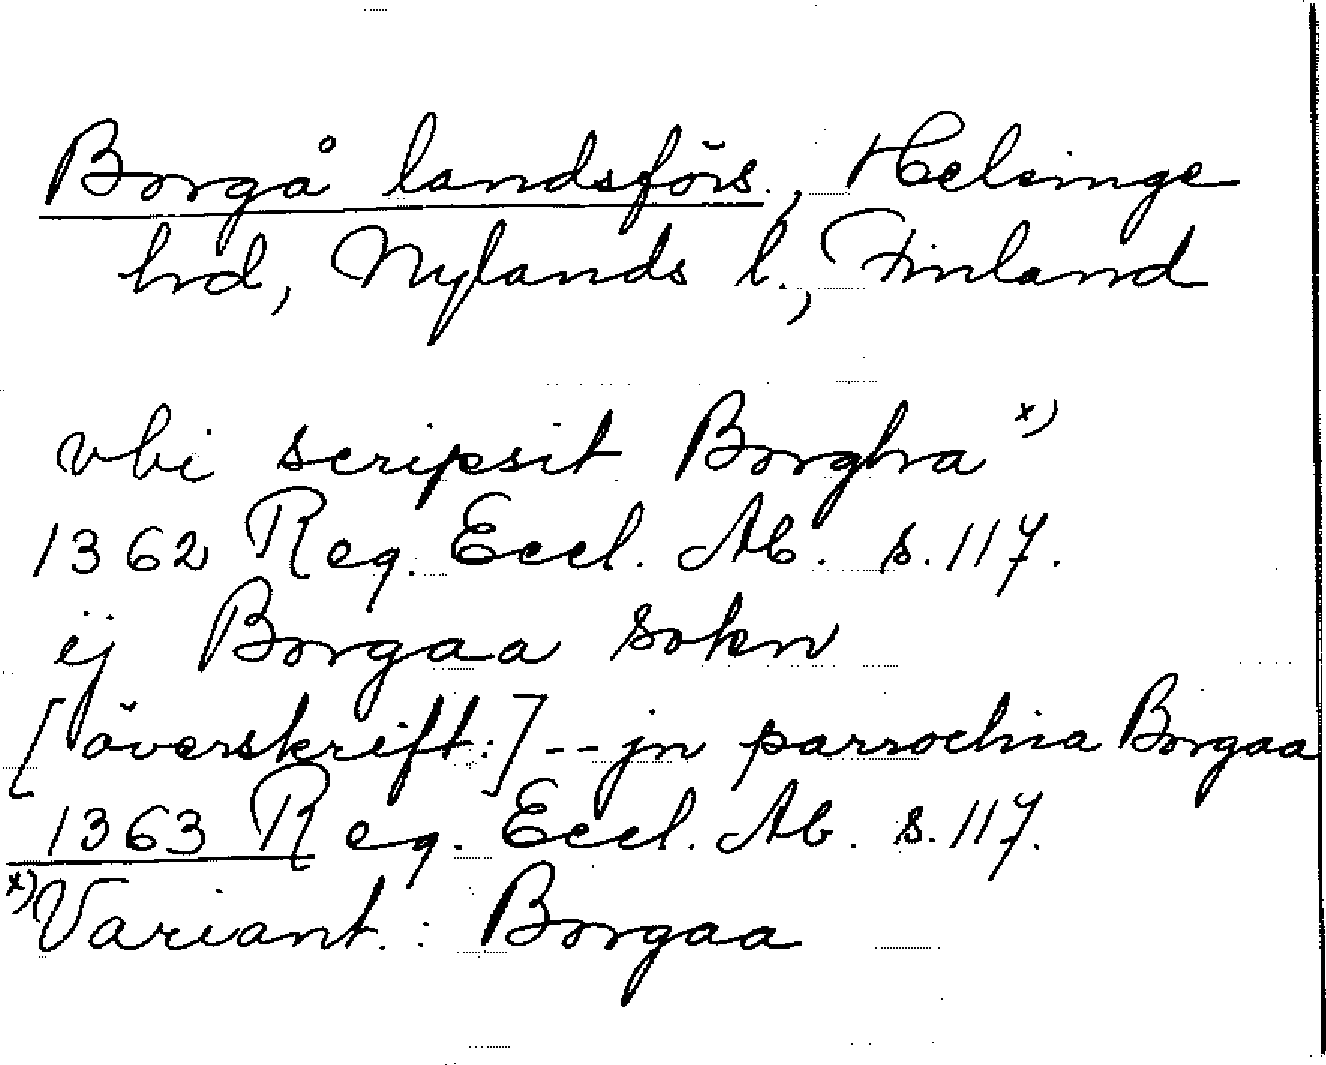 Borgå landsförs., Helsinge
hd, Nylands l., Finland
vbi scripsit Borgha x)
1362 Reg. Eccl. Ab. s. 117.
ij Borgaa sokn
[överskrift:] -- jn parrochia Borgaa
1363 Reg. Eccl. Ab. s. 117.
x) Variant.: Borgaa